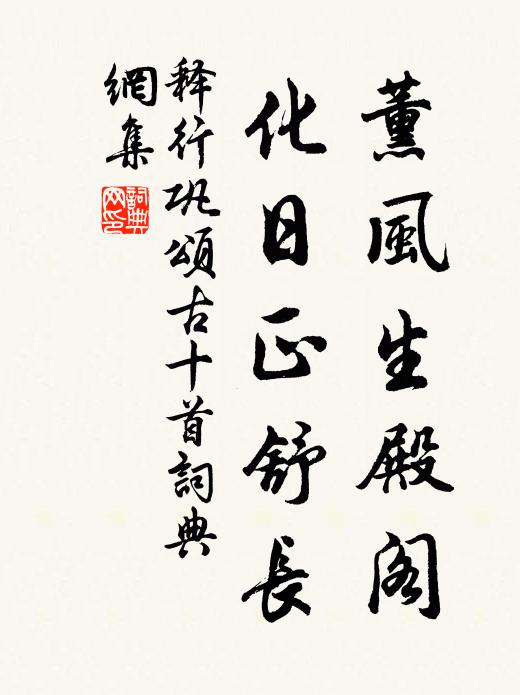 薰風生殿阁
化日正舒長
释行巩頌古十首詞典
網集
詞典网印